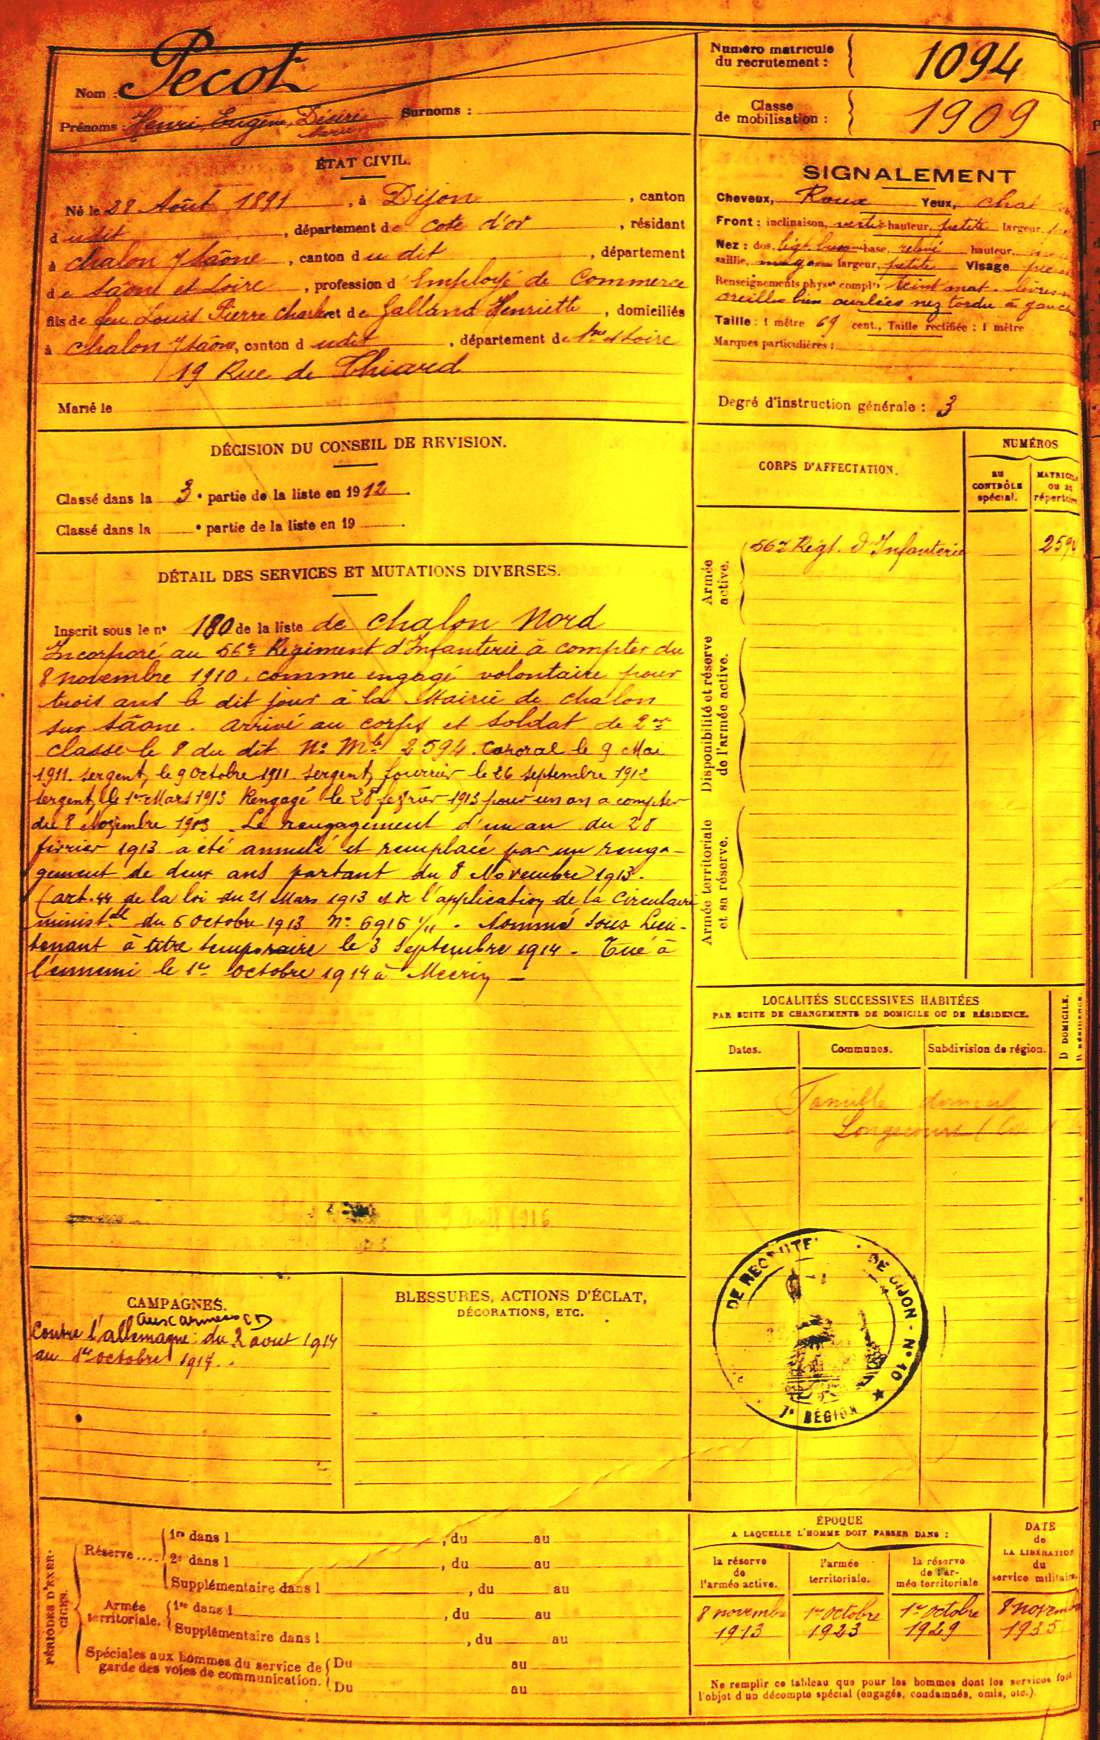 Nom : Pecot
Prénoms : Henri, Eugène, Désiré Surnoms :
Numéro matricule du recrutement : 1094
Classe de mobilisation : 1909
ÉTAT CIVIL.
Né le 28 Août 1891, à Dijon, canton
d udit, département de cote d'or, résidant
à chalon s/saône, canton d u dit, département
de Saône et Loire, profession d'Employé de Commerce
fils de feu Louis Pierre Charles et de Galland Henriette, domiciliés
à chalon s/saône, canton d udit, département de Sne et Loire
19 Rue de Thiard
Marié le
SIGNALEMENT
Cheveux, Roux Yeux, chat
Front : inclinaison, vertic hauteur, petite largeur,
Nez : dos, base, relevé hauteur,
saillie, largeur, petite Visage
Renseignements physes complres teint mat
oreilles bien ourlées nez tordu à gauch
Taille : 1 mètre 69 cent., Taille rectifiée : 1 mètre
Marques particulières :
Degré d'instruction générale : 3
DÉCISION DU CONSEIL DE REVISION.
Classé dans la 3e partie de la liste en 1912.
Classé dans la e partie de la liste en 19 .
CORPS D'AFFECTATION.
NUMÉROS
au CONTRÔLE spécial.
MATRICULE ou au répertoire
Armée active.
56e Régt. d'Infanterie 2594
Disponibilité et réserve de l'armée active.
Armée territoriale et sa réserve.
DÉTAIL DES SERVICES ET MUTATIONS DIVERSES.
Inscrit sous le n° 180 de la liste de Chalon Nord
Incorporé au 56e Régiment d'Infanterie à compter du
8 novembre 1910, comme engagé volontaire pour
trois ans le dit jour à la Mairie de chalon
sur saône. arrivé au corps et soldat de 2me
classe le 8 du dit No Mle 2594. Caporal le 9 Mai
1911. sergent, le 9 octobre 1911. sergent fourrier le 26 septembre 1912
sergent, le 1er Mars 1913 Rengagé le 28 février 1913 pour un an a compter
du 8 Novembre 1913. Le rengagement d'un an du 28
février 1913 a été annulé et remplacé par un renga-
gement de deux ans partant du 8 Novembre 1913.
(art. 44 de la loi du 21 Mars 1913 et de l'application de la Circulaire
ministlle du 6 octobre 1913 No 6916 1/11. Nommé Sous Lieu-
tenant à titre temporaire le 3 Septembre 1914. Tué à
l'ennemi le 1er octobre 1914 à Mécrin
LOCALITÉS SUCCESSIVES HABITÉES
PAR SUITE DE CHANGEMENTS DE DOMICILE OU DE RÉSIDENCE.
Dates. Communes. Subdivision de région. D DOMICILE. R RÉSIDENCE.
Famille domicil
Longecourt
1916
DE RECRUTE DE DIJON - N° 10
7e RÉGION
CAMPAGNES.
aux armées CD
Contre l'allemagne : du 2 aout 1914
au 1er octobre 1914.
BLESSURES, ACTIONS D'ÉCLAT,
DÉCORATIONS, ETC.
PÉRIODES D'EXERCICES.
Réserve .... 1re dans l , du au
2e dans l , du au
Supplémentaire dans l , du au
Armée territoriale. 1re dans l , du au
Supplémentaire dans l , du au
Spéciales aux hommes du service de garde des voies de communication. Du au
Du au
ÉPOQUE
A LAQUELLE L'HOMME DOIT PASSER DANS :
la réserve de l'armée active. l'armée territoriale. la réserve de l'armée territoriale
DATE de LA LIBÉRATION du service militaire.
8 novembre 1913 1er Octobre 1923 1er Octobre 1929 8 novem 1935
Ne remplir ce tableau que pour les hommes dont les services font
l'objet d'un décompte spécial (engagés, condamnés, omis, etc.).